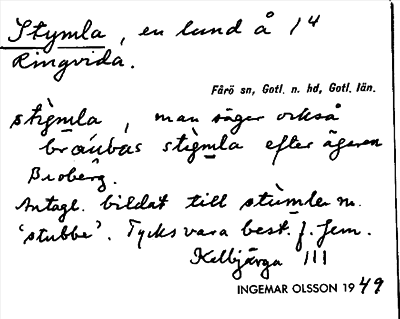 Stymla, en lund å 1⁴
Ringvida.
Fårö sn, Gotl. n. hd, Gotl. län.
stìgmla, man säger också
bráubas stìgmla efter ägaren
Broberg.
Antagl. bildat till stùmler m.
'stubbe'. Tycks vara best. f. fem.
Kelbjärga III
INGEMAR OLSSON 1949